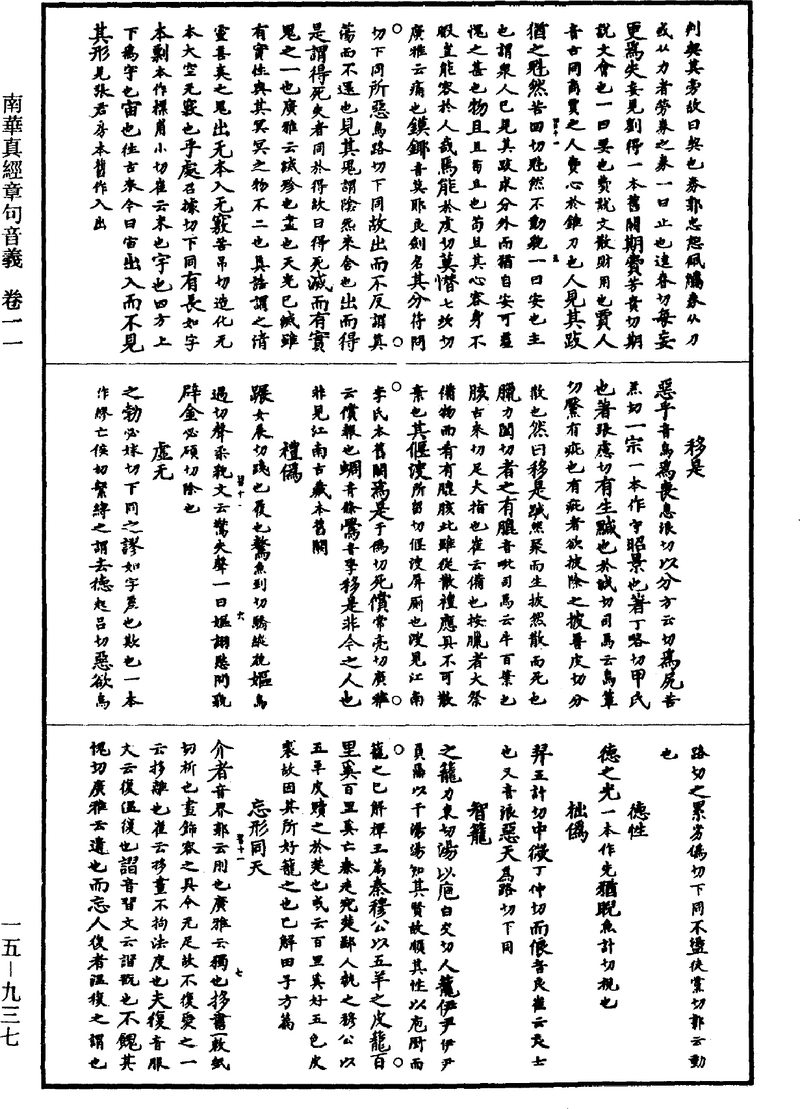 南華真經章句音義　卷一一
一五—九三七
判契其旁故曰契也券郭忠恕佩觿券从刀
或从力者勞券之券一曰止也逵眷切每妄
更焉失妾見劉得一本舊闕期費芳貴切期
說文會也一曰要也費說文散財用也賈人
音古同商賈之人費心於錐刀也人見其跂
猶之魁然苦回切魁然不動貌一曰安也主
也謂衆人已見其跂求分外而猶自安可羞
愧之甚也物且且苟且也苟且其心容身不
暇豈能容於人哉焉能於虔切莫憯七坎切
廣雅云痛也鏌鋣音莫耶良劍名其分符問
切下同所惡烏路切下同故出而不反謂真
蕩而不還也見其鬼謂陰然來舍也出而得
是謂得死失者同於得故曰得死滅而有實
鬼之一也廣雅云滅殄也盡也天光已滅雖
有實性與其冥冥之物不二也真誥謂之清
靈善爽之鬼出无本入无竅苦吊切造化无
本大空无竅也乎處召據切下同有長如字
本剽本作標眉小切崔云末也宇也四方上
下爲宇也宙也往古來今曰宙出入而不見
其形見張君房本舊作入出
移是
惡乎音烏爲喪息浪切以分方云切爲尻苦
羔切一宗一本作守昭景也著丁略切甲氏
也著張慮切有生黬也於減切司馬云烏簟
切黶有疵也有疵者欲披除之披普皮切分
散也然曰移是黬然聚而生披然散而死也
臘力闔切者之有膍音毗司馬云牛百葉也
胲古來切足大指也崔云備也按臘者大祭
備物而肴有膍胲此雖從散禮應具不可散
棄也其偃溲所留切偃溲屏廁也溲見江南
李氏本舊闕爲是于僞切死償常亮切廣雅
云償報也蜩音條鷽音學移是非今之人也
非見江南古藏本舊闕
禮僞
蹍女展切踐也履也驁魚到切驕縱放嫗烏
遇切聲柔貌文云驚失聲一曰嫗詡慰問貌
辟金必硕切除也
虛无
之勃必妹切下同之謬如字差也欺也一本
作繆亡侯切繫縛之謂去德起呂切惡欲烏
路切之累劣僞切下同不盪徒黨切郭云動
也
德性
德之光一本作先猶睨魚計切視也
拙僞
羿五計切中微丁仲切而俍音良崔云良士
也又音浪惡天烏路切下同
智籠
之籠力東切湯以庖白交切人籠伊尹伊尹
負鼎以干湯湯知其賢故順其性以庖廚而
籠之已解禪王篇秦穆公以五羊之皮籠百
里奚百里奚亡秦走宛楚鄙人執之穆公以
五羊皮贖之於楚也或云百里奚好五色皮
裘故因其所好籠之也已解田子方篇
忘形同天
介者音界郭云刖也廣雅云獨也拸畫一敕紙
切析也畫飾容之具今无足故不復愛之一
云拸離也崔云拸畫不拘法度也夫復音服
文云復温復也謵音習文云謵翫也不餽其
愧切廣雅云遺也而忘人復者温復之謂也